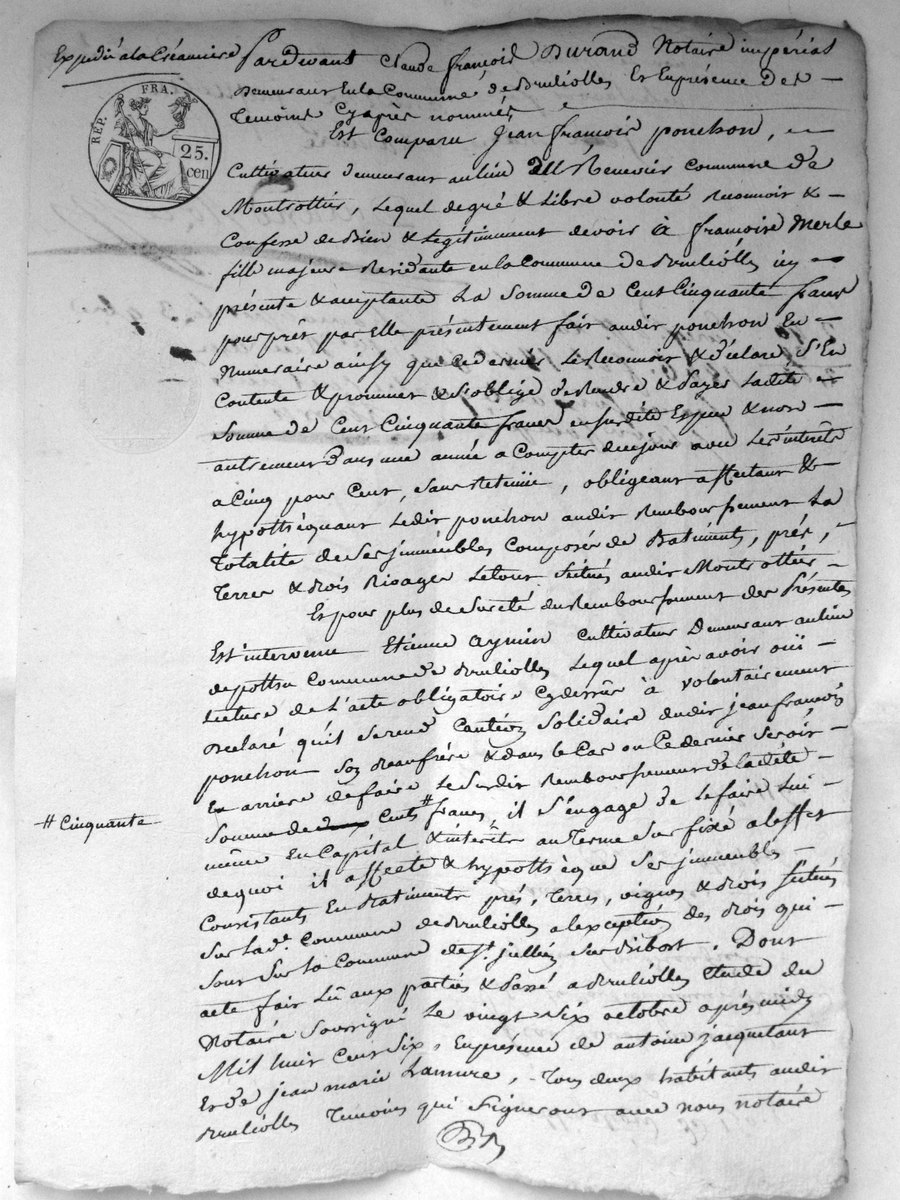 Expédié a la Créanciere
REP. FRA.
25.
cen
Pardevant Claude françois Durand Notaire impérial
Demeurant En la Commune de Bruliolles Et En présence Des
Temoins Cyaprès nommés
Est Comparu Jean francois ponchon,
Cultivateur demeurant au lieu Commune de
Montrottier, Lequel de gré & Libre volonté Reconnoit &
Confesse de Bien & Légitimement devoir à francoise Merle
fille majeure Residante en la Commune de Brulliolles icy
présente & acceptante La Somme de Cent Cinquante francs
pour prêt par Elle présentement fait audit ponchon En
Numeraire ainsy que Ce dernier Le Reconnoit & déclare S'En
Contente & promet & S'oblige de Rendre & Payer Ladite
Somme de Cent Cinquante francs en susdite Espece & non
autrement Dans une année a Compter de ce jour avec Les intérêts
a Cinq pour Cent, Sans Retenüe, obligeant affectant &
hypothéquant Ledit ponchon audit Remboursement La
Totalité de Ses jmmeubles Composés de Batiments, prés,
Terres & Bois Le tout Situés audit Montrottier
Et pour plus de Sureté du Remboursement des Présentes
Est intervenu Etienne aymin Cultivateur Demeurant au lieu
de Commune de Brulliolles Lequel après avoir oüi
Lecture de L'acte obligatoire Cydessus à volontairement
Declaré qu'il Se rend Caution Solidaire dudit jean françois
ponchon Son Beaufrére & dans le Cas ou Ce dernier Seroit
En arriere de faire Le Susdit Remboursement de Ladite
Somme de Cent # francs, il S'engage De Le faire Lui
# Cinquante
même En Capital & intérêts au Terme Sus fixé a L'effet
de quoi il affecte & hypothéque Ses jmmeubles
Consistants En Batiments prés, Terres, vignes & Bois Situés
Sur Lad.e Commune de Brulliolles a L'exception des Bois qui
Sont Sur La Commune de St. jullien Sur Bibost. Dont
acte fait Lû aux parties & Passé a Brulliolles Etude du
Notaire Soussigné Le vingt Six octobre après midy
Mil huit Cent Six, En présence de antoine jacquetant
Et de jean marie Lamure, Tous deux habitants audit
Brulliolles Temoins qui Signeront avec nous notaire